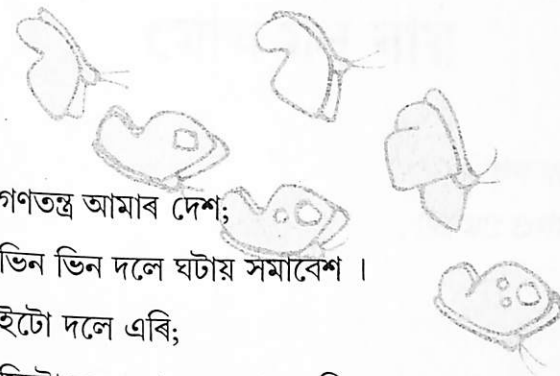 গণতন্ত্ৰ আমাৰ দেশ;
ভিন ভিন দলে ঘটায় সমাবেশ ।
ইটো দলে এৰি;